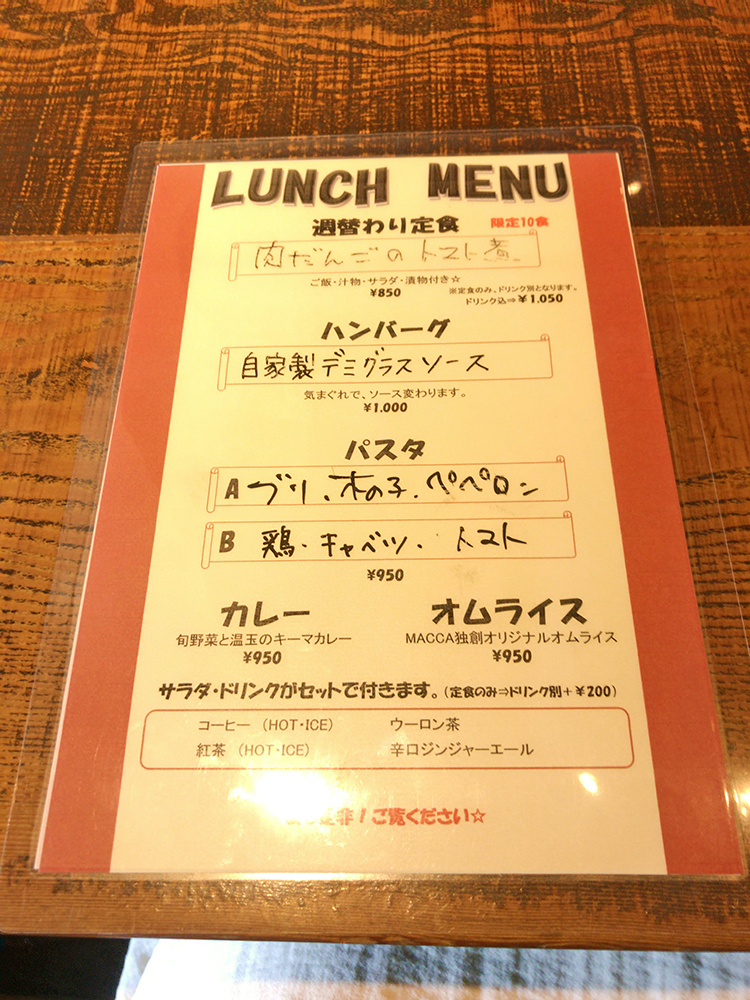 LUNCH MENU
週替わり定食 限定10食
肉だんごのトマト煮
ご飯・汁物・サラダ・漬物付き☆
¥850
※定食のみ、ドリンク別となります。
ドリンク込⇒¥1,050
ハンバーグ
自家製デミグラスソース
気まぐれで、ソース変わります。
¥1,000
パスタ
A ブリ、木の子、ペペロン
B 鶏・キャベツ・トマト
¥950
カレー
旬野菜と温玉のキーマカレー
¥950
オムライス
MACCA独創オリジナルオムライス
¥950
サラダ・ドリンクがセットで付きます。(定食のみ⇒ドリンク別+¥200)
コーヒー (HOT・ICE) ウーロン茶
紅茶 (HOT・ICE) 辛口ジンジャーエール
非!ご覧ください☆